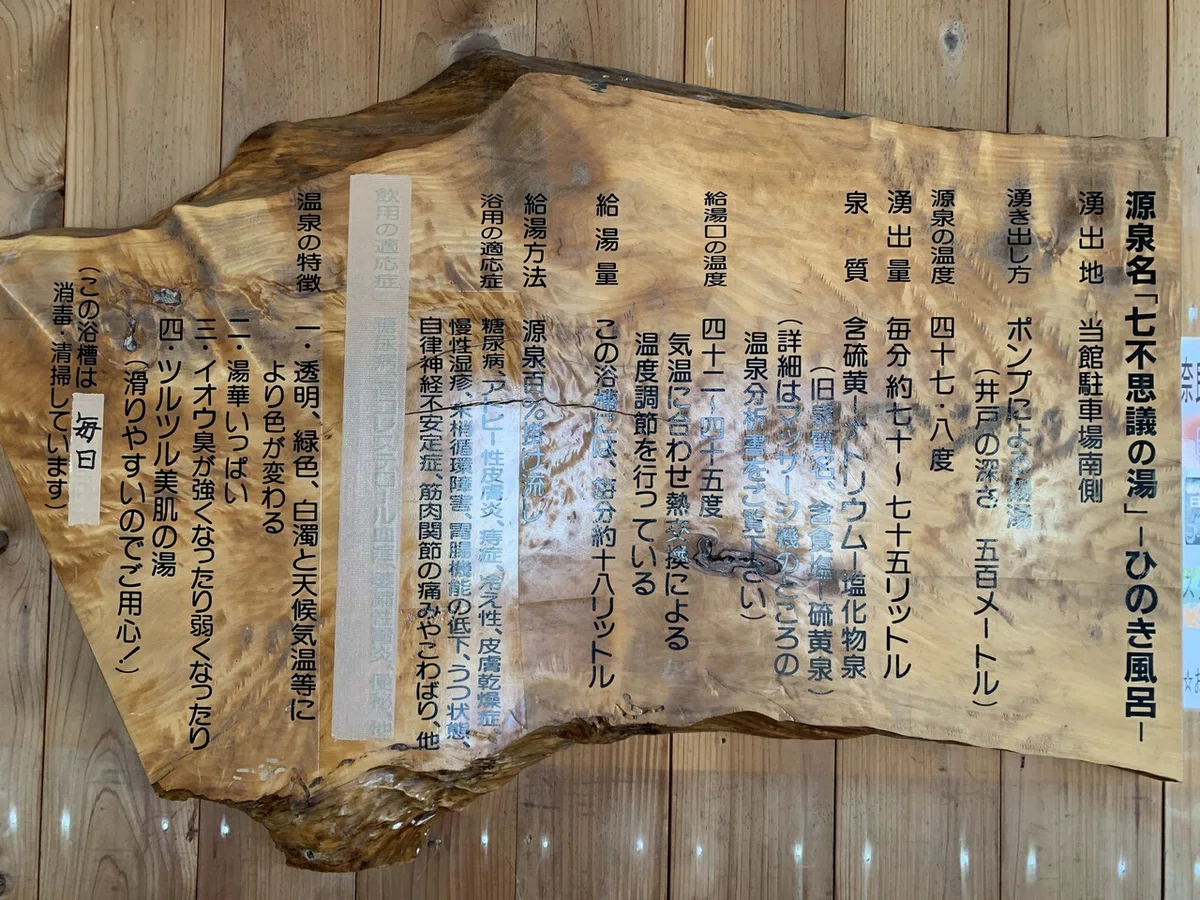 源泉名「七不思議の湯」－ひのき風呂－
湧出地 当館駐車場南側
湧き出し方 ポンプによる揚湯
(井戸の深さ 五百メートル)
源泉の温度 四十七・八度
湧出量 毎分約七十～七十五リットル
泉質 含硫黄－ナトリウム－塩化物泉
(旧泉質名、含食塩－硫黄泉)
(詳細はマッサージ機のところの
温泉分析書をご覧下さい)
給湯口の温度 四十二～四十五度
気温に合わせ熱交換による
温度調節を行っている
給湯量 この浴槽には、毎分約十八リットル
給湯方法 源泉百%掛け流し
浴用の適応症 糖尿病、アトピー性皮膚炎、痔症、冷え性、皮膚乾燥症、
慢性湿疹、末梢循環障害、胃腸機能の低下、うつ状態、
自律神経不安定症、筋肉関節の痛みやこわばり、他
飲用の適応症 糖尿病、コレステロール血症、萎縮性胃炎、便秘、他
温泉の特徴 一・透明、緑色、白濁と天候気温等に
より色が変わる
二・湯華いっぱい
三・イオウ臭が強くなったり弱くなったり
四・ツルツル美肌の湯
(滑りやすいのでご用心!)
(この浴槽は 毎日
消毒・清掃しています)
奈良